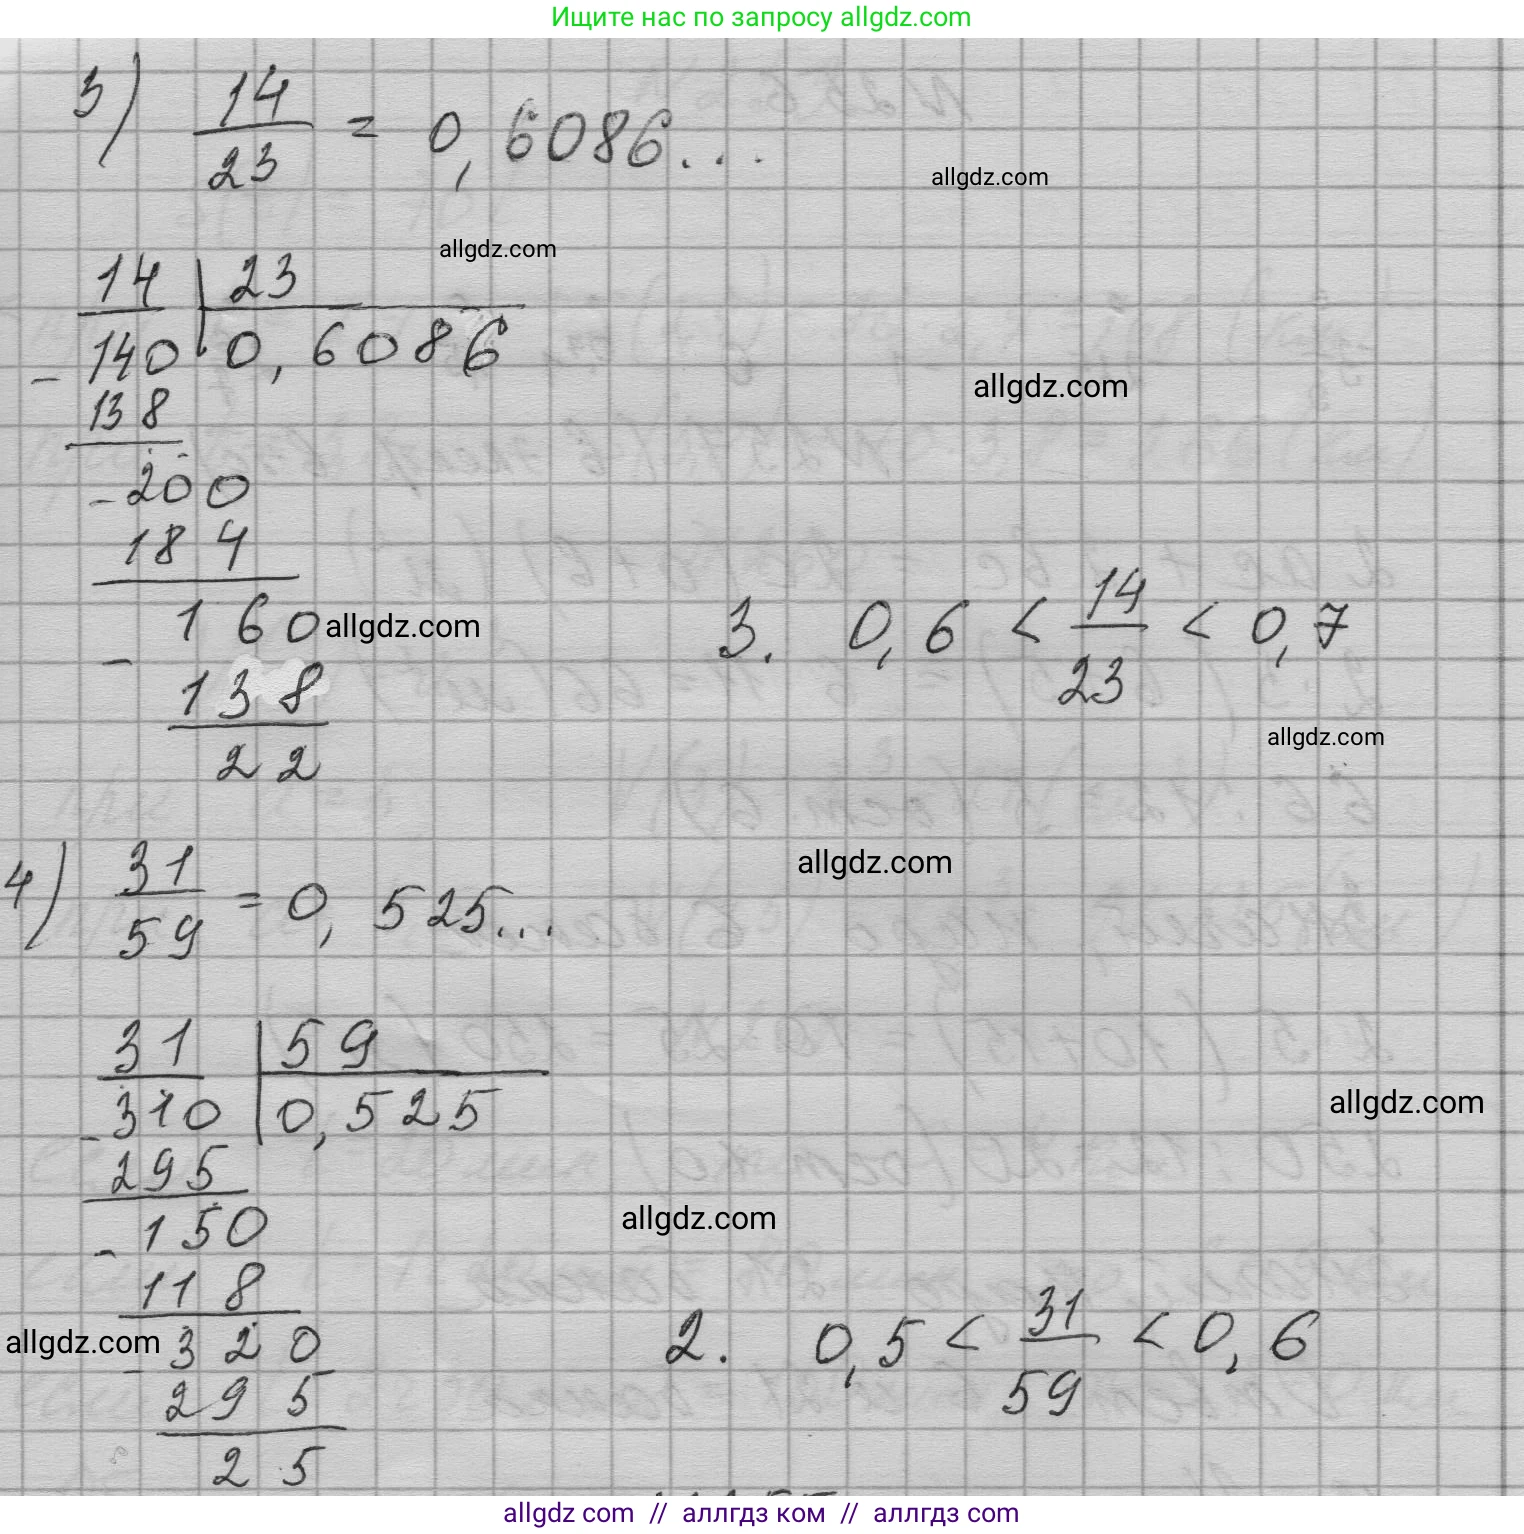 Ищите нас по запросу allgdz.com
3) 14/23 = 0,6086...
allgdz.com
allgdz.com
14 | 23
140 | 0,6086
allgdz.com
- 138
- 200
184
160
allgdz.com
3. 0,6 < 14/23 < 0,7
- 138
allgdz.com
22
4) 31/59 = 0,525...
allgdz.com
31 | 59
- 310 | 0,525
allgdz.com
295
- 150
allgdz.com
118
allgdz.com
- 320
2. 0,5 < 31/59 < 0,6
295
25
allgdz com // аллгдз ком // аллгдз com